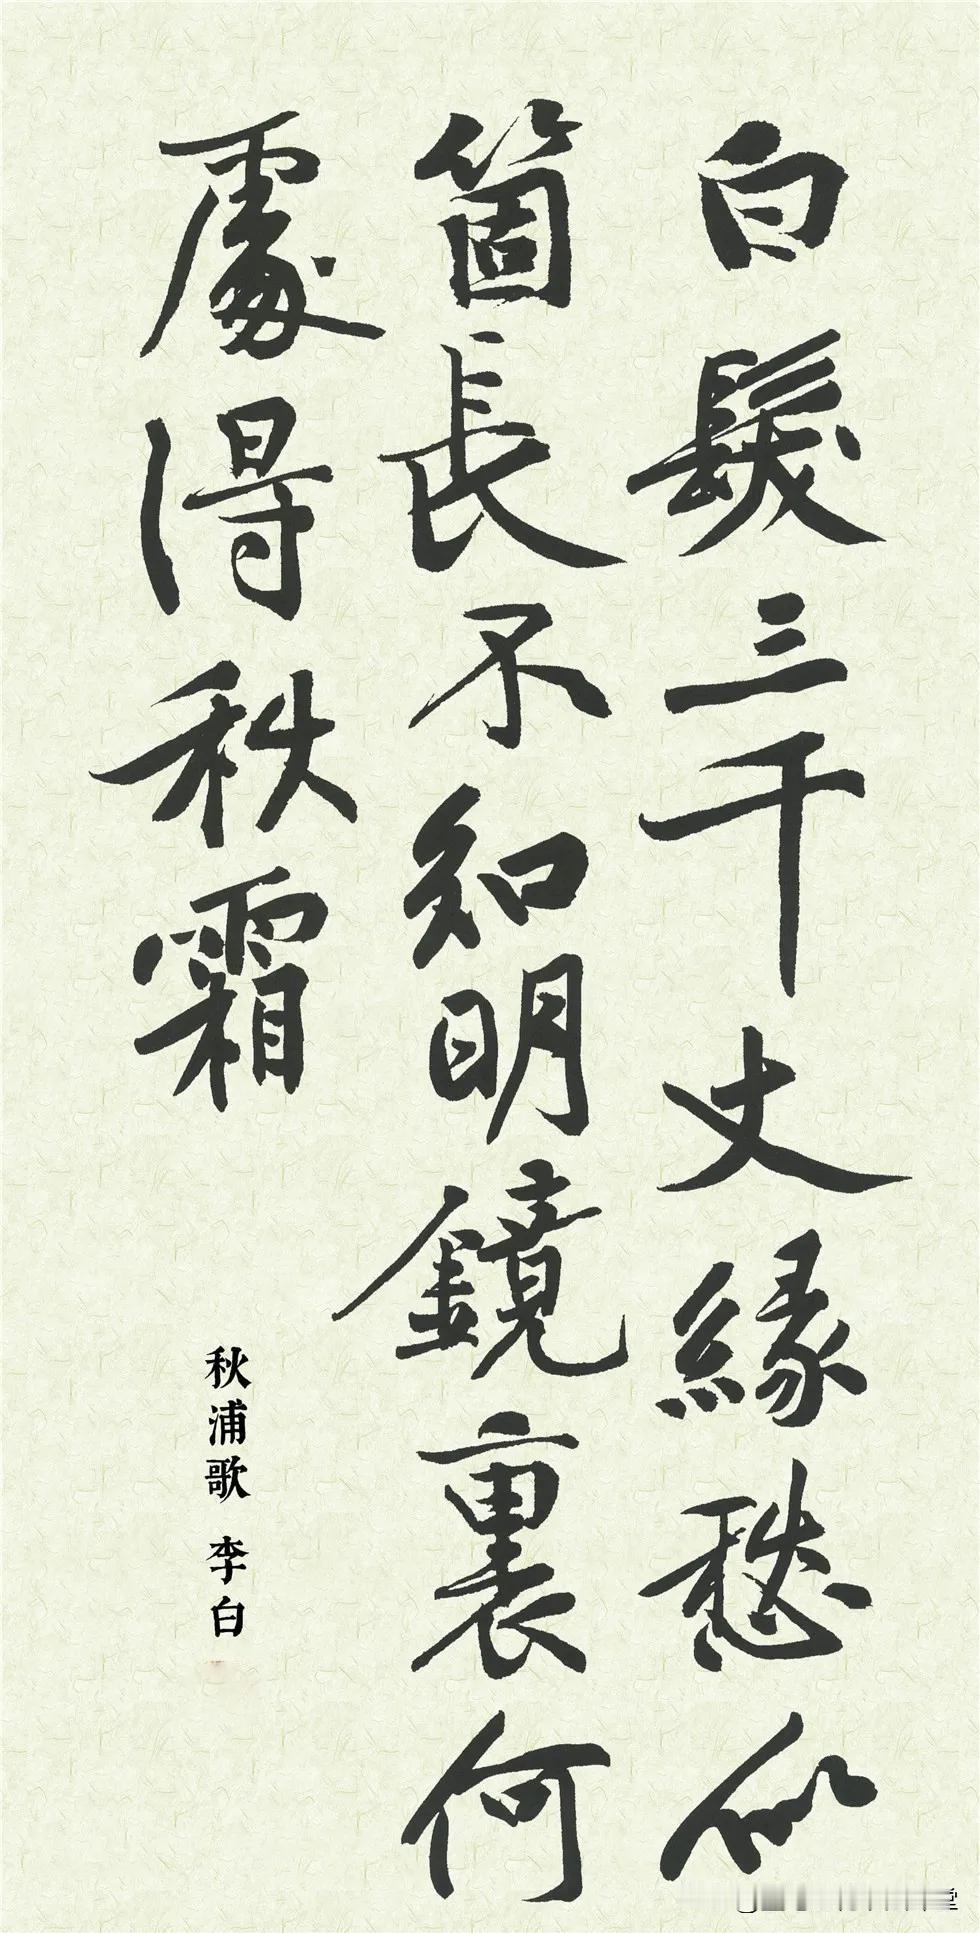 白髮三千丈緣愁似
箇長不知明鏡裏何
處得秋霜
秋浦歌 李白